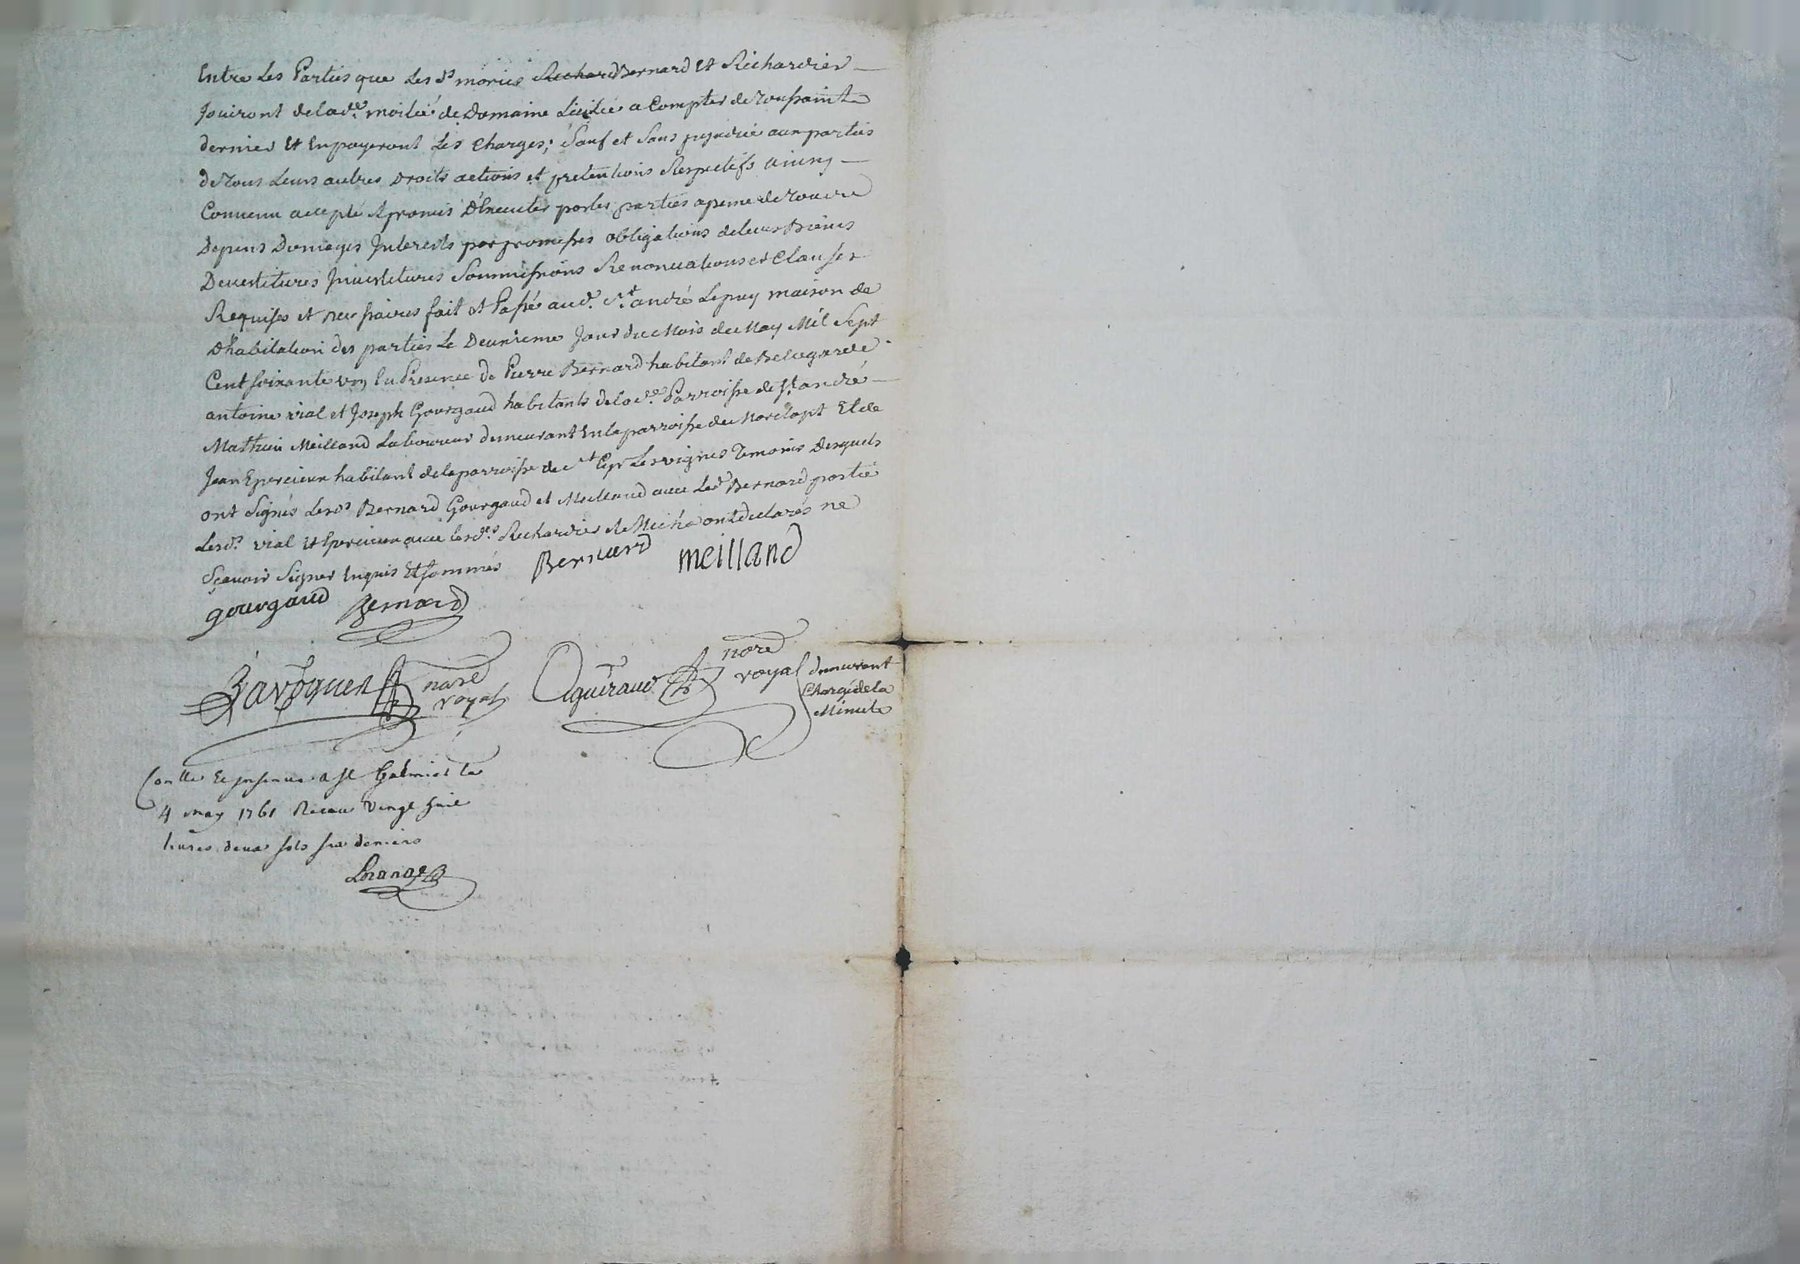 Entre Les Parties que Les ds mariés Richard Bernard Et Richardier
Jouiront de lade moitié de Domaine a Compter de Toussaint
dernier Et En payeront Les Charges; Sauf et Sans prejudice aux parties
de Tous Leurs autres Droits actions et pretentions Respectifs ainsy
Convenu accepté et promis D'Executer par les parties a peine de Tous
Depens Domages Interests par promesses obligations de leurs Biens
Devestitures Investitures Soumissions Renonciations et Clauses
Requises et necessaires fait et Passé aud. St andré Lepuy maison de
D'habitation des parties Le Deuxieme Jour du Mois de May Mil Sept
Cent soixante un En Presence de Pierre Bernard habitant de Bellegarde
antoine vial et Joseph Gourgaud habitants de lade Parroisse de St andré
Mathieu Meilland Laboureur demeurant En la parroisse de Et de
Jean Epercieux habitant de la parroisse de St Cyr Les vignes Temoins Desquels
ont Signés Lesds Bernard Gourgaud et Meilland avec Led Bernard partie
Lesds vial et Epercieux avec lesds Richardier et ont declarés ne
Sçavoir Signer Enquis Et sommés Bernard meilland
gourgaud Bernard
nore
royal
nore
royal demeurant
Chargé de la
Minute
Conllé Et insinué a St Galmier Le
4 may 1761 Receu vingt huit
livres deux sols six deniers